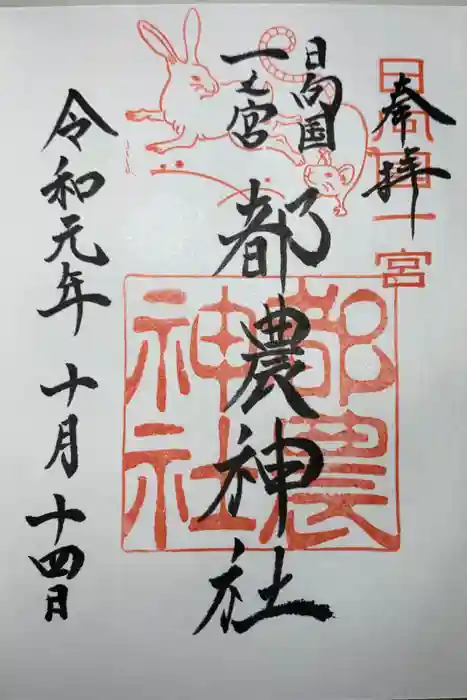 奉拝
日向国一宮
日向国
一之宮
都農神社
都農
神社
令和元年十月十四日